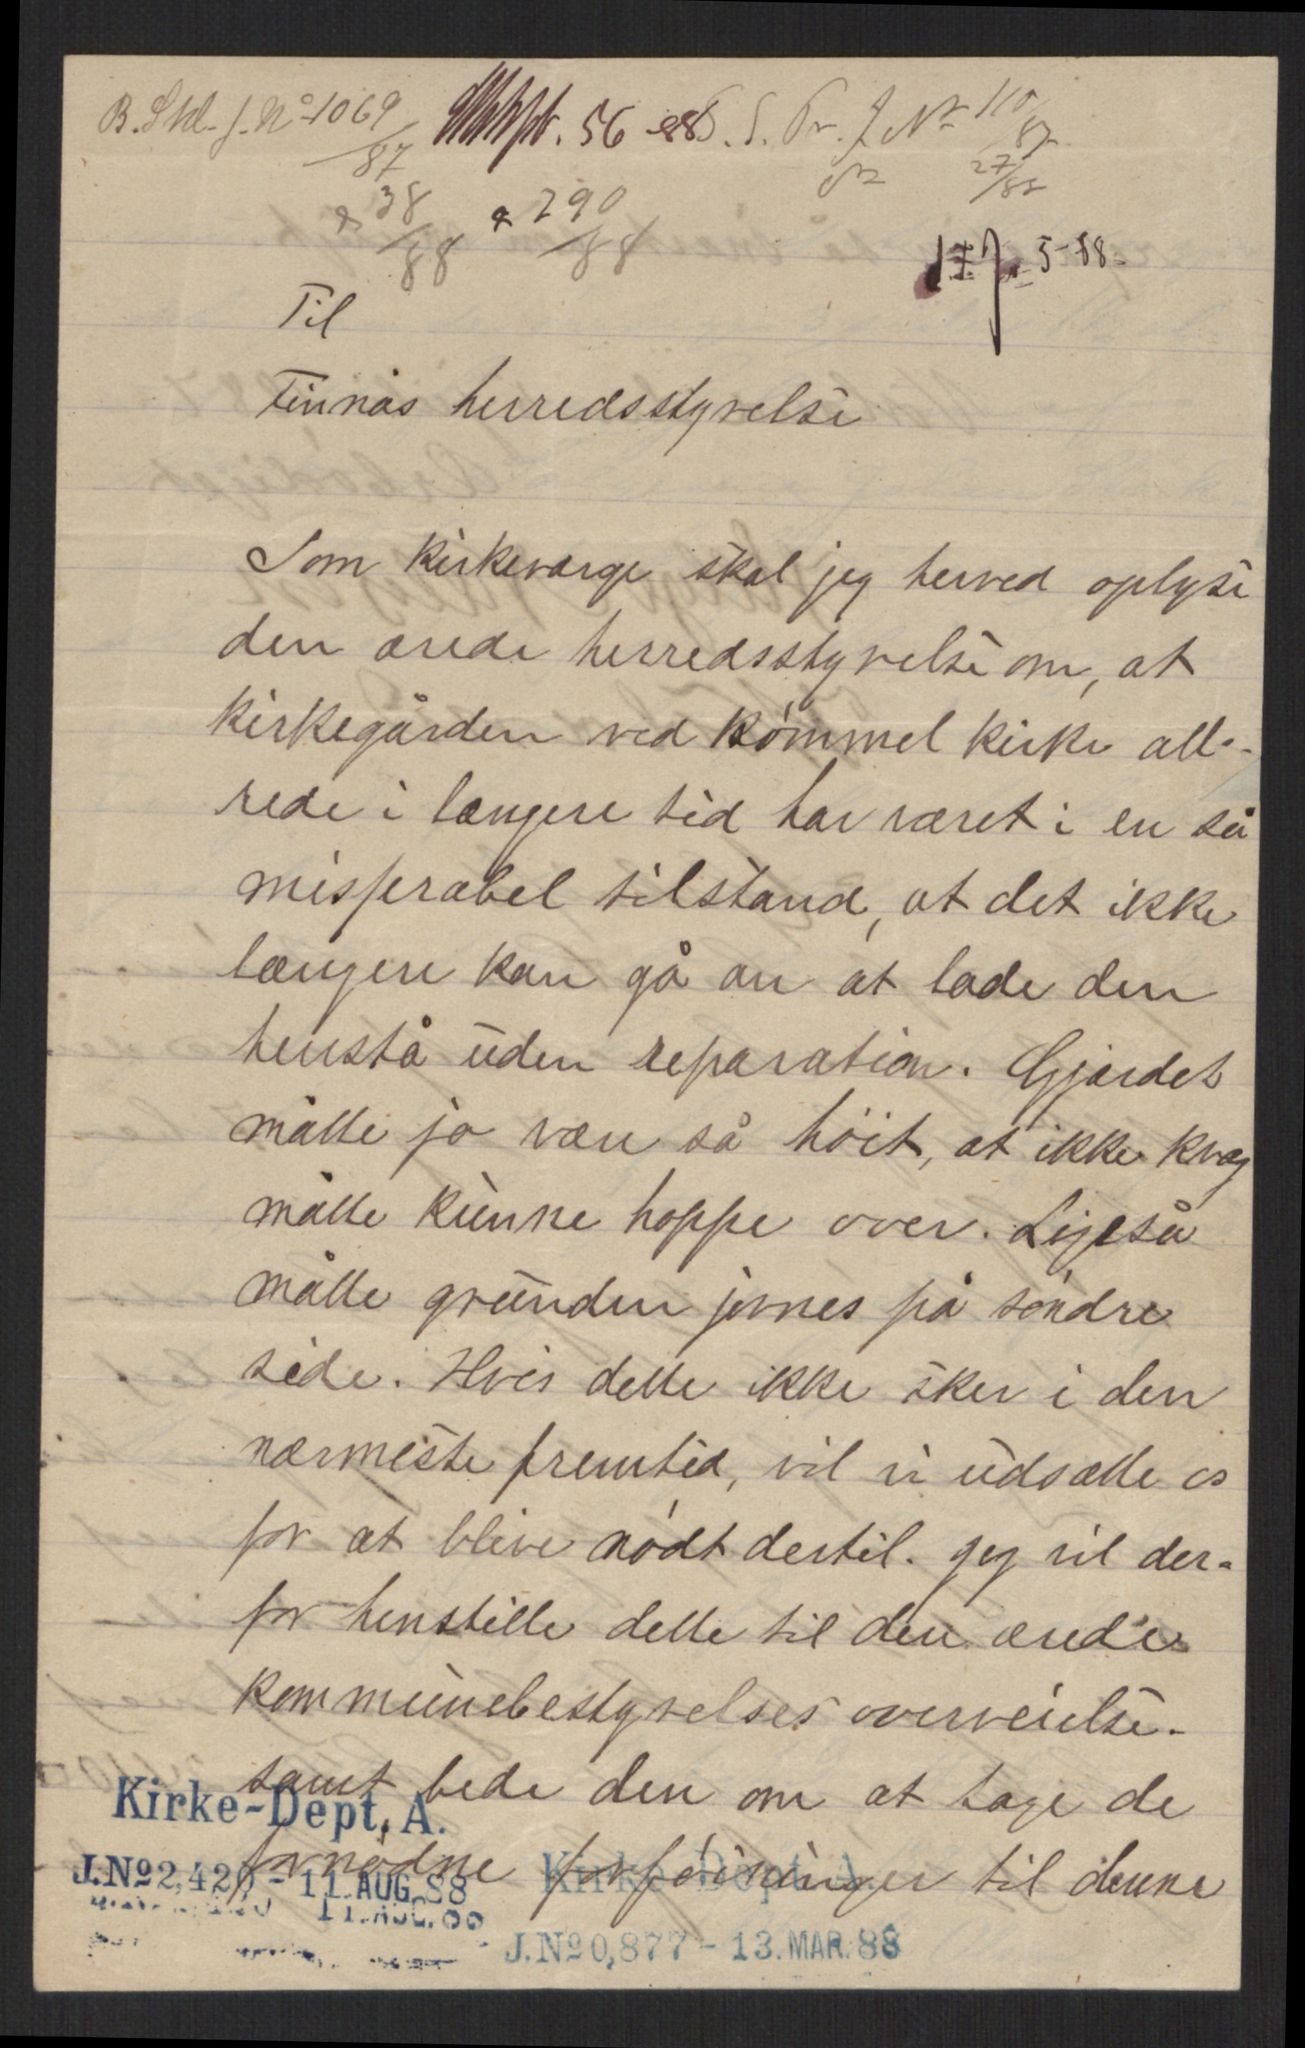 B. Skl. j. Nº 1069/87
56 - 88
S. Pr. J Nr 110/87
27/88
& 38/88 & 290/88
5-88-
Til
Finnås herredsstyrelse
Som kirkeværge skal jeg herved oplyse
den ærede herredsstyrelse om, at
kirkegården ved Bömmel kirke alle-
rede i længere tid har været i en så
misserabel tilstand, at det ikke
længere kan gå an at lade den
henstå uden reparation. Gjærdet
måtte jo være så höit, at ikke kvæg
måtte kunne hoppe over. Ligeså
måtte grunden jevnes på söndre
side. Hvis dette ikke sker i den
nærmeste fremtid, vil vi udsætte os
for at blive nödt dertil. Jeg vil der-
for henstille dette til den ærede
kommunebestyrelses overveielse.
samt bede den om at tage de
fornödne forföininger til denne
Kirke-Dept. A.
J.Nº 2,420 - 11.AUG.88
Kirke-Dept. A.
J.Nº 0,877 - 13.MAR.88